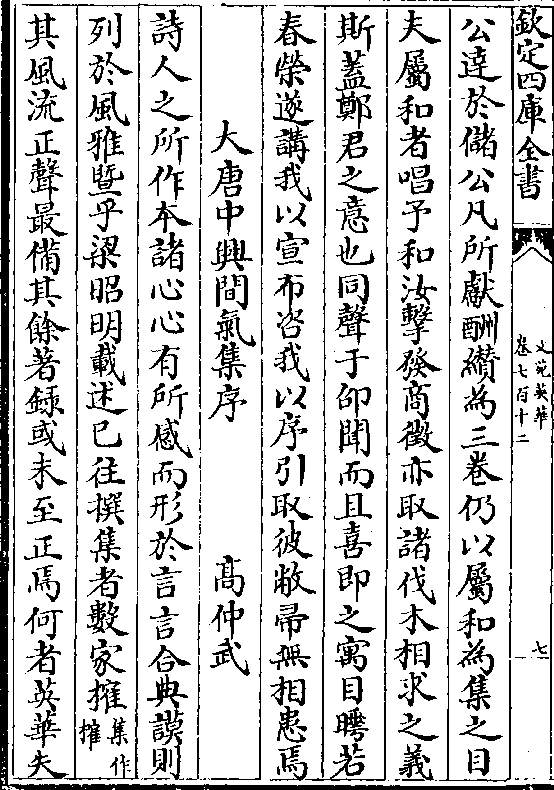 欽定四庫全書
文苑英華
卷七百十二
七
公達於儲公凡所獻酬纉為三卷仍以屬和為集之目
夫屬和者唱予和汝擊發商徴亦取諸伐木相求之義
斯蓋鄭君之意也同聲于卭聞而且喜即之寓目瞻若
春榮遂講我以宣布咨我以序引取彼敝帚無相患焉
大唐中興間氣集序
髙仲武
詩人之所作本諸心心有所感而形於言言合典謨則
列於風雅暨乎梁昭明載述已往撰集者數家搉集作榷
其風流正聲最備其餘著録或未至正焉何者英華失